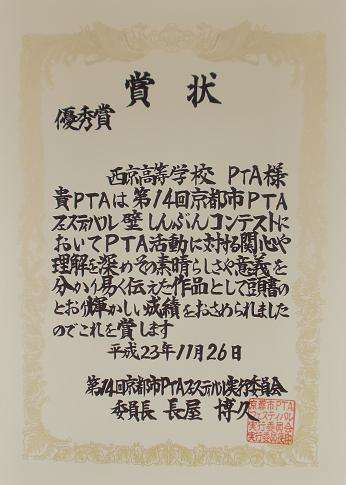 賞状
優秀賞
西京高等学校 PTA様
貴PTAは第14回京都市PTA
フェスティバル 壁しんぶんコンテストに
おいてPTA活動に対する関心や
理解を深めその素晴らしさや意義を
分かり易く伝えた作品として頭書の
とおり輝かしい成績をおさめられました
のでこれを賞します
平成23年11月26日
第14回京都市PTAフェスティバル実行委員会
委員長 長屋 博久
京都市PTA
フェスティバル
実行委員会
実行委員長印